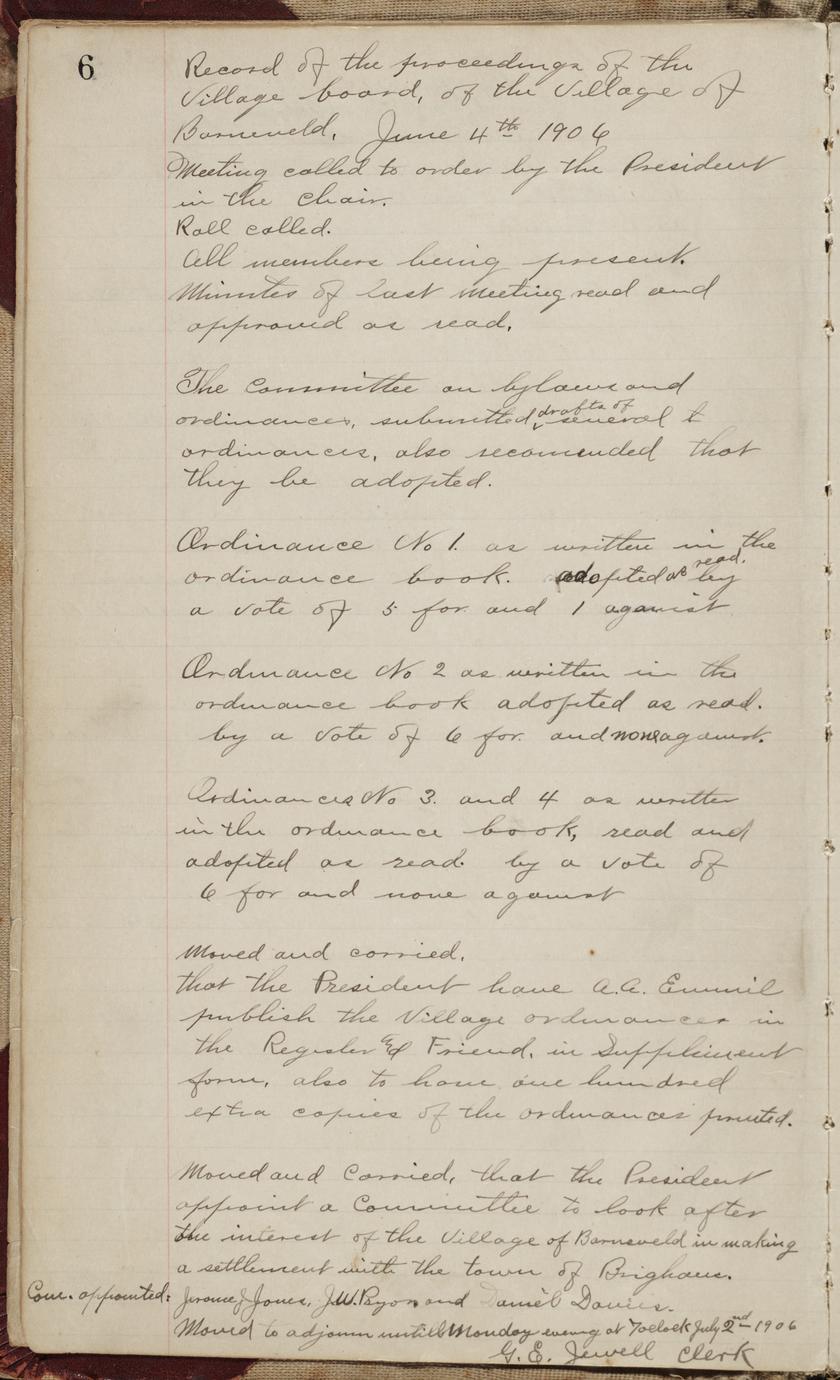 6
Record of the proceedings of the
Village board, of the Village of
Barneveld, June 4th 1906
Meeting called to order by the President
in the chair.
Roll called.
All members being present.
Minutes of last meeting read and
approved as read.
The Committee on bylaws and
ordinances, submitted drafts of several
ordinances, also recomended that
they be adopted.
Ordinance No 1. as written in the
ordinance book. adopted as read. by
a vote of 5 for and 1 against
Ordinance No 2 as written in the
ordinance book adopted as read.
by a vote of 6 for and none against.
Ordinances No 3. and 4 as written
in the ordinance book, read and
adopted as read by a vote of
6 for and none against
Moved and carried,
that the President have A.A.
publish the Village ordinances in
the Register & Friend, in Suppliment
form, also to have one hundred
extra copies of the ordinances printed.
Moved and Carried, that the President
appoint a Committee to look after
the interest of the Village of Barneveld in making
a settlement with the town of Brigham.
Com. appointed: Jerome J Jones, J.W. Pryor and Daniel Davies.
Moved to adjourn untill Monday evening at 7oclock July 2nd 1906
G. E. Jewell Clerk